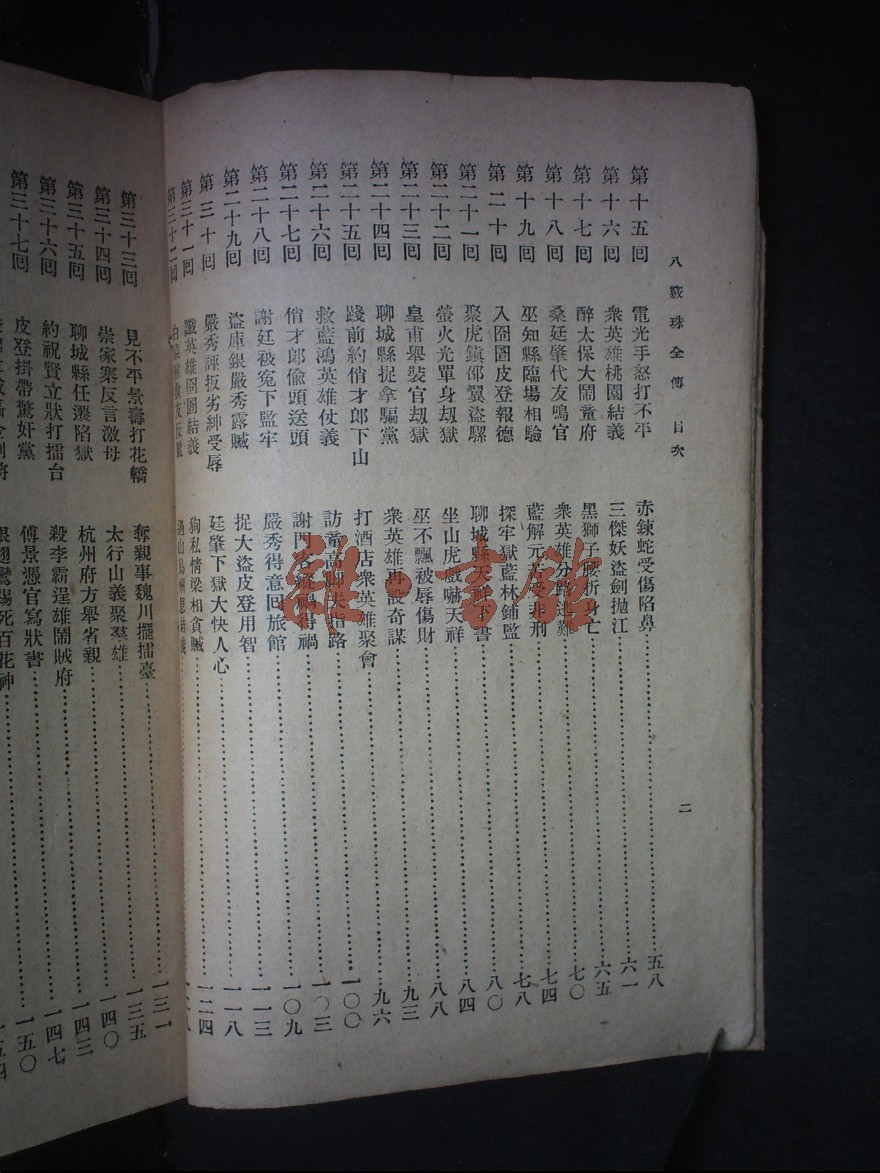 八竅珠全傳 目次
二
第十五回 電光手怒打不平 赤鍊蛇受傷陷鼻 五八
第十六回 衆英雄桃園結義 三傑妖盜劍拋江 六一
第十七回 醉太保大鬧董府 黑獅子腰折身亡 六五
第十八回 桑廷肇代友鳴官 衆英雄分路逃難 七〇
第十九回 巫知縣臨場相驗 藍解元苦受非刑 七四
第二十回 入囹圄皮登報德 探牢獄藍林鋪監 七八
第二十一回 聚虎鎮邵翼盜騾 聊城縣天祥下書 八〇
第二十二回 螢火光單身劫獄 坐山虎戲嚇天祥 八四
第二十三回 皇甫舉裝官劫獄 巫不飄被辱傷財 八八
第二十四回 聊城縣捉拿騙黨 衆英雄再設奇謀 九三
第二十五回 踐前約俏才郎下山 打酒店衆英雄聚會 九六
第二十六回 救藍鴻英雄仗義 訪蕾高脚夫指路 一〇〇
第二十七回 俏才郎偷頭送頭 謝門客縱禍得禍 一〇三
第二十八回 謝廷被冤下監牢 嚴秀得意回旅館 一〇九
第二十九回 盜庫銀嚴秀露贓 捉大盜皮登用智 一一三
第三十回 嚴秀誣扳劣紳受辱 廷肇下獄大快人心 一一八
第三十一回 讖英雄囹圄結義 狗私情梁相貪贓 一二四
第三十二回
第三十三回 見不平景壽打花轎 奪親事魏川擺擂臺 一三一
第三十四回 崇家寨反言激母 太行山義聚羣雄 一三五
第三十五回 聊城縣任遷陷獄 杭州府方舉省親 一四〇
第三十六回 約祝賢立狀打擂台 殺李霸逞雄鬧賊府 一四三
第三十七回 皮登掛帶驚奸黨 傅景憑官寫狀書 一四七
一五〇
雒·書館